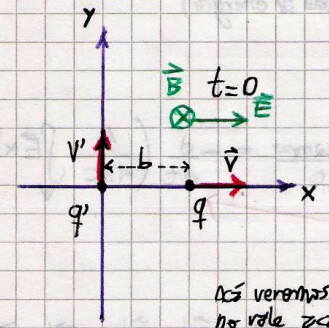 Y
B⃗ t=0
E⃗
V' b V⃗
X
q' q
Acá veremos
no vale